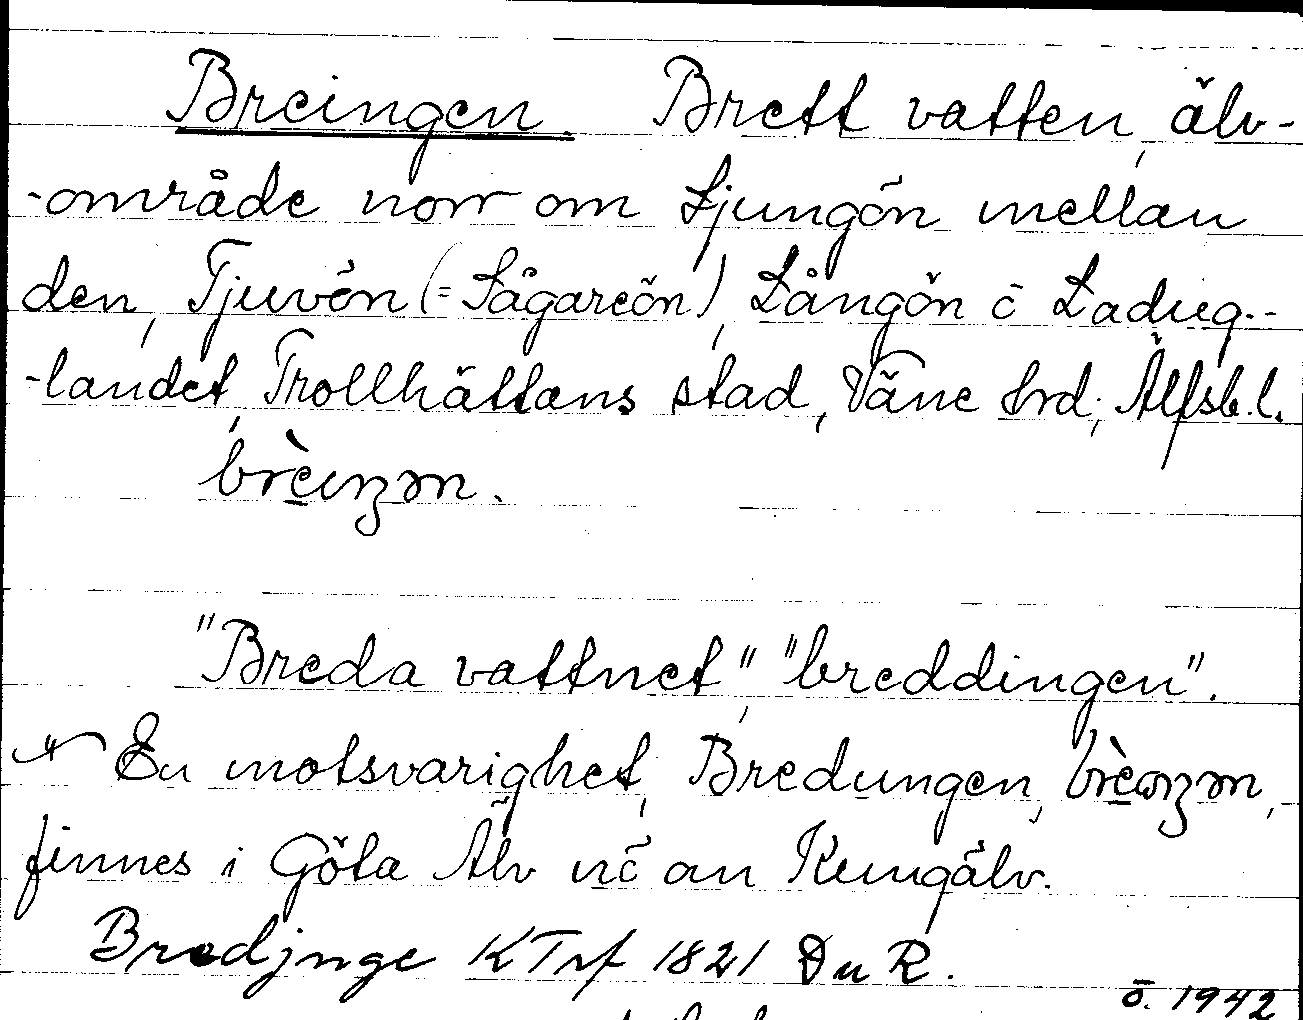 Breingen. Brett vatten, älv-
-område norr om Ljungön mellan
den, Tjuvön (= Sågareön), Långön o Ladug--
-landet, Trollhättans stad, Väne hrd; Älfsb.l.
"Breda vattnet", "breddingen".
En motsvarighet, Bredungen,
finnes i Göta Älv nö om Kungälv.
Bredjnge KTrf 1821 Du R.
ö. 1942